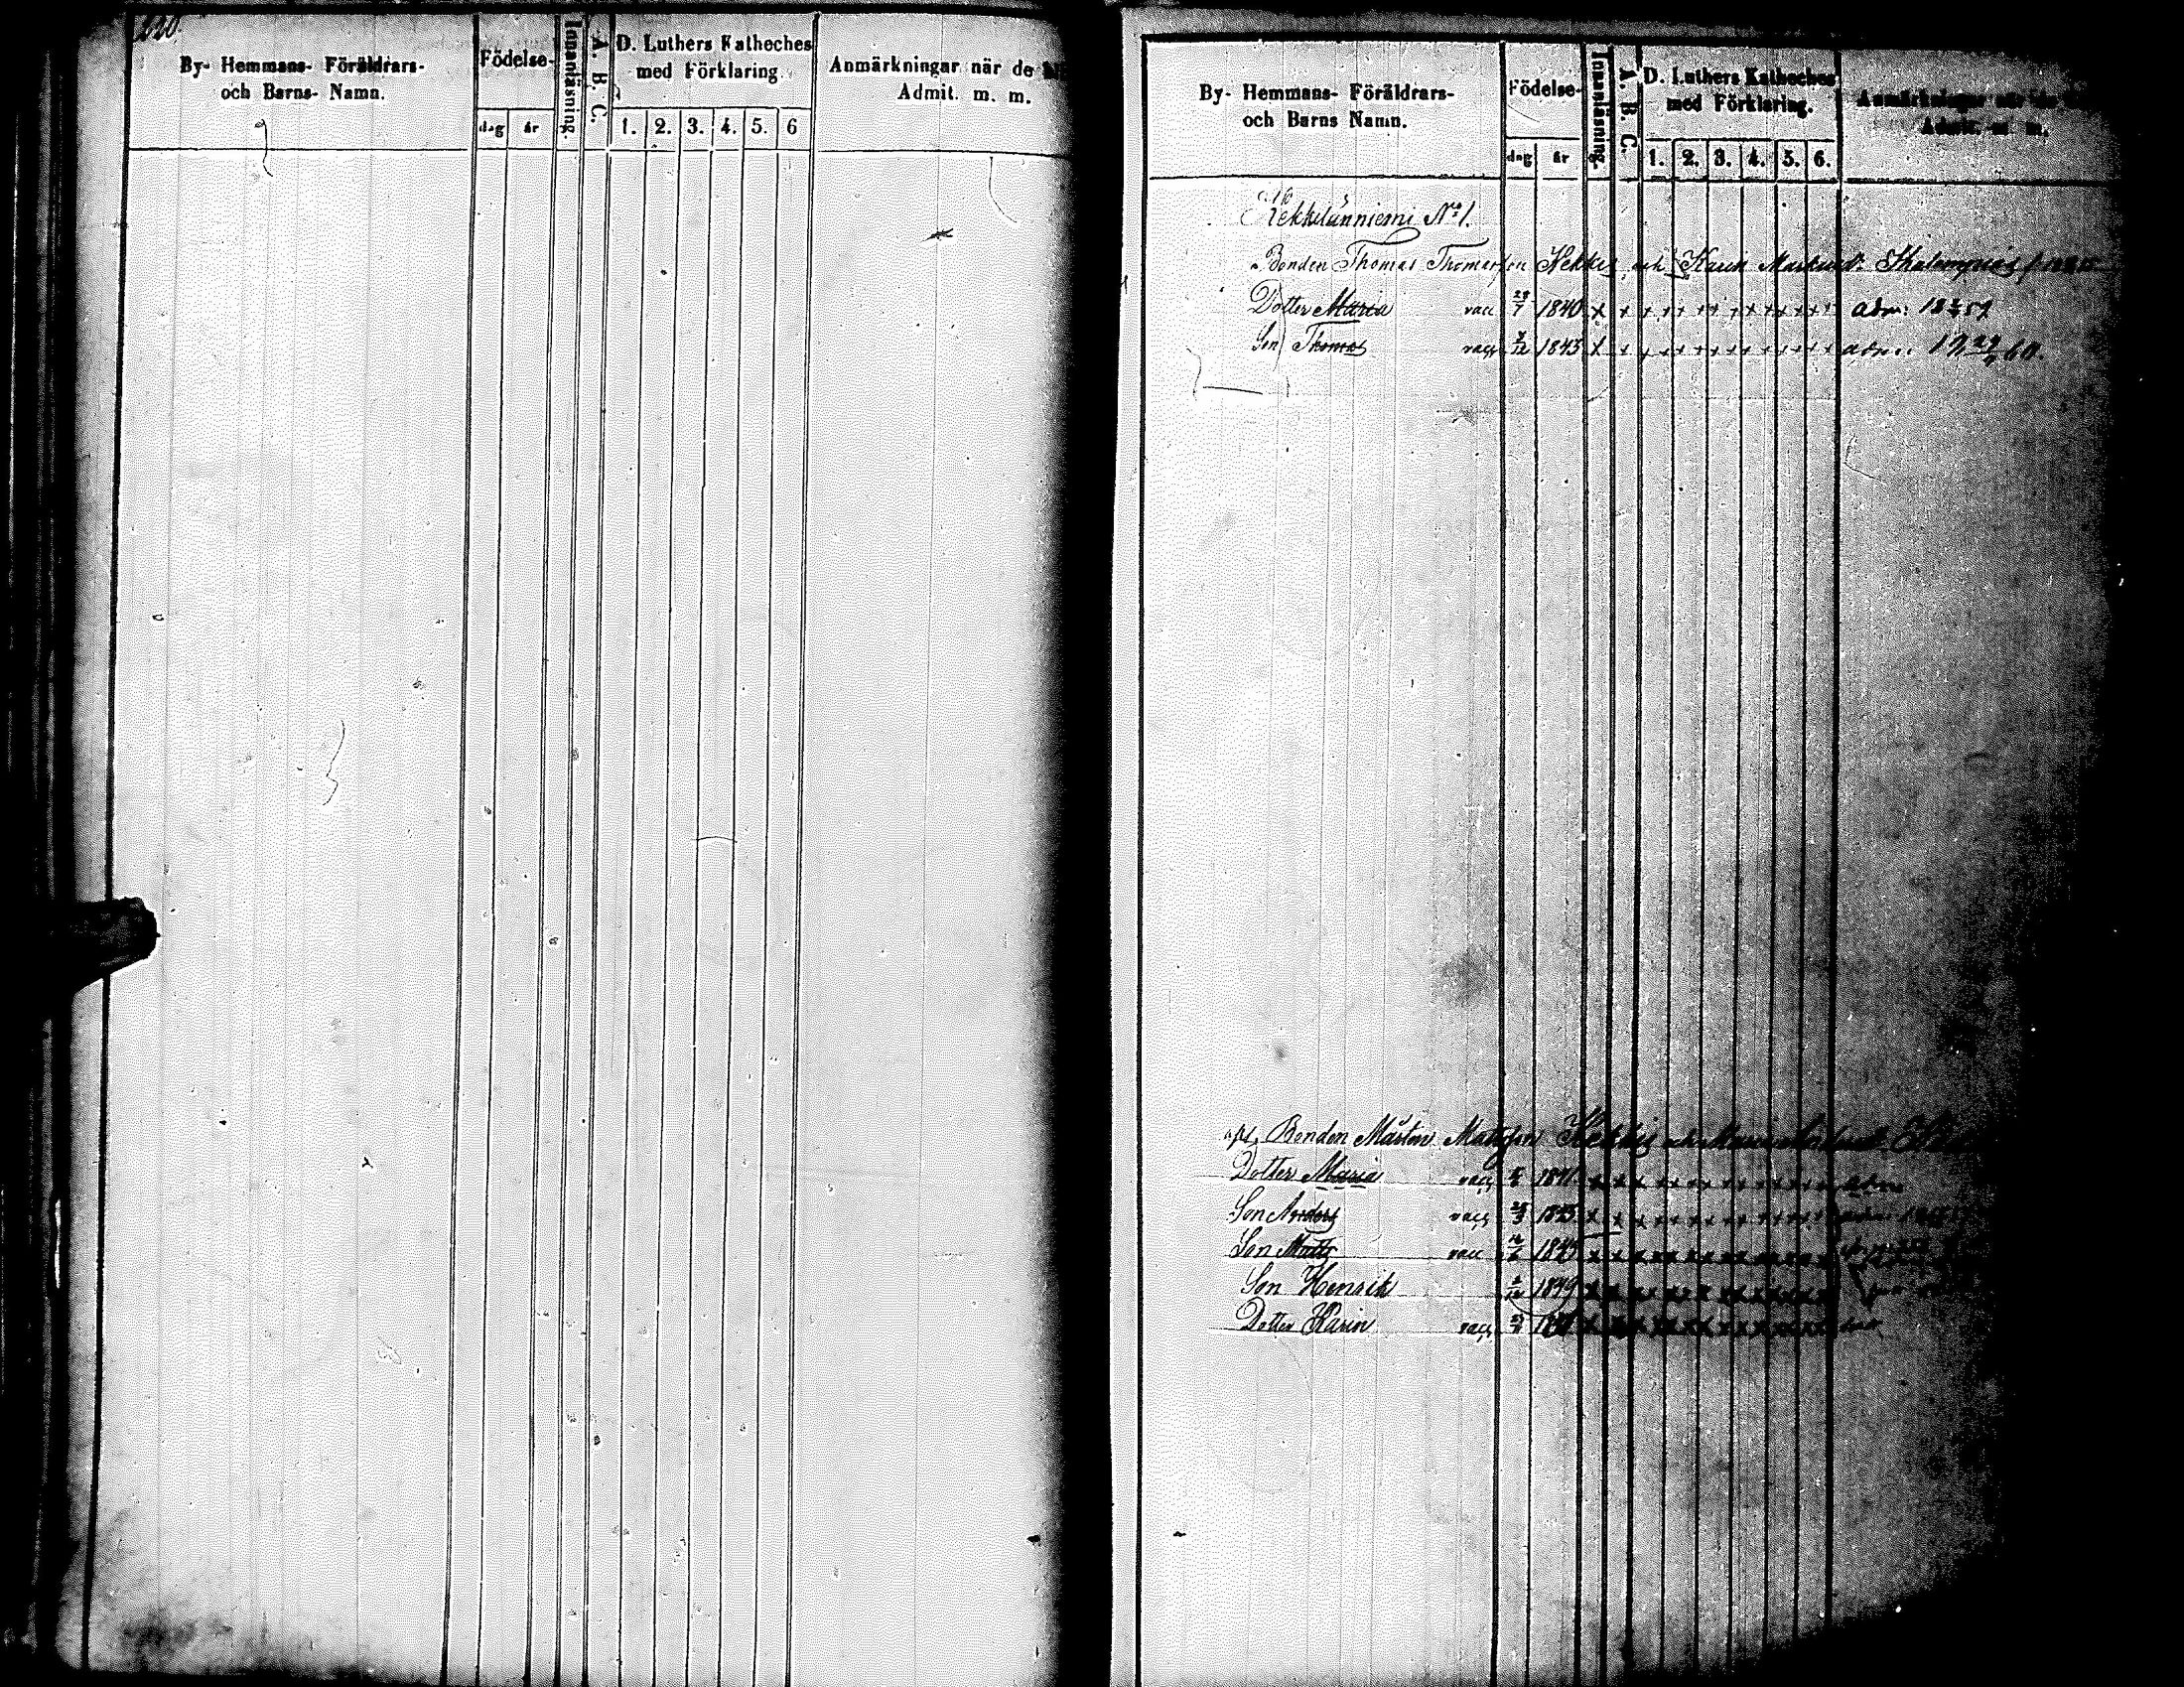 220.
By- Hemmans- Föräldrars-
och Barns- Namn.
Födelse-
dag år
Innanläsning.
A. B. C.
D. Luthers Katheches
med Förklaring.
1. 2. 3. 4. 5. 6
Anmärkningar när de
Admit. m. m.
By- Hemmans- Föräldrars-
och Barns Namn.
Födelse-
dag år
Innanläsning.
A. B. C.
D. Luthers Katheches
med Förklaring.
1. 2. 3. 4. 5. 6.
Anmärkningar när de
Admit. m. m.
Kekkilänniemi No 1.
Bonden Thomas Thomasson Kekkis och Karin Marksd:
Dotter Maria vacc 1840 x x x x x x x x x x x x adm: 18 59
Son Thomas vacc 12 1843 x x x x x x x x x x x x adm: 18 60.
Bonden Mårten Matsson Kekkis och
Dotter Maria vacc 1841 x x x x x x x x x x x x adm
Son Anders vacc x x x x x x x x x x x x
Son Matts vacc 1845 x x x x x x x x x x x x
Son Henrik 1849 x x x x x x x x x x x x
Dotter Karin vacc x x x x x x x x x x x x